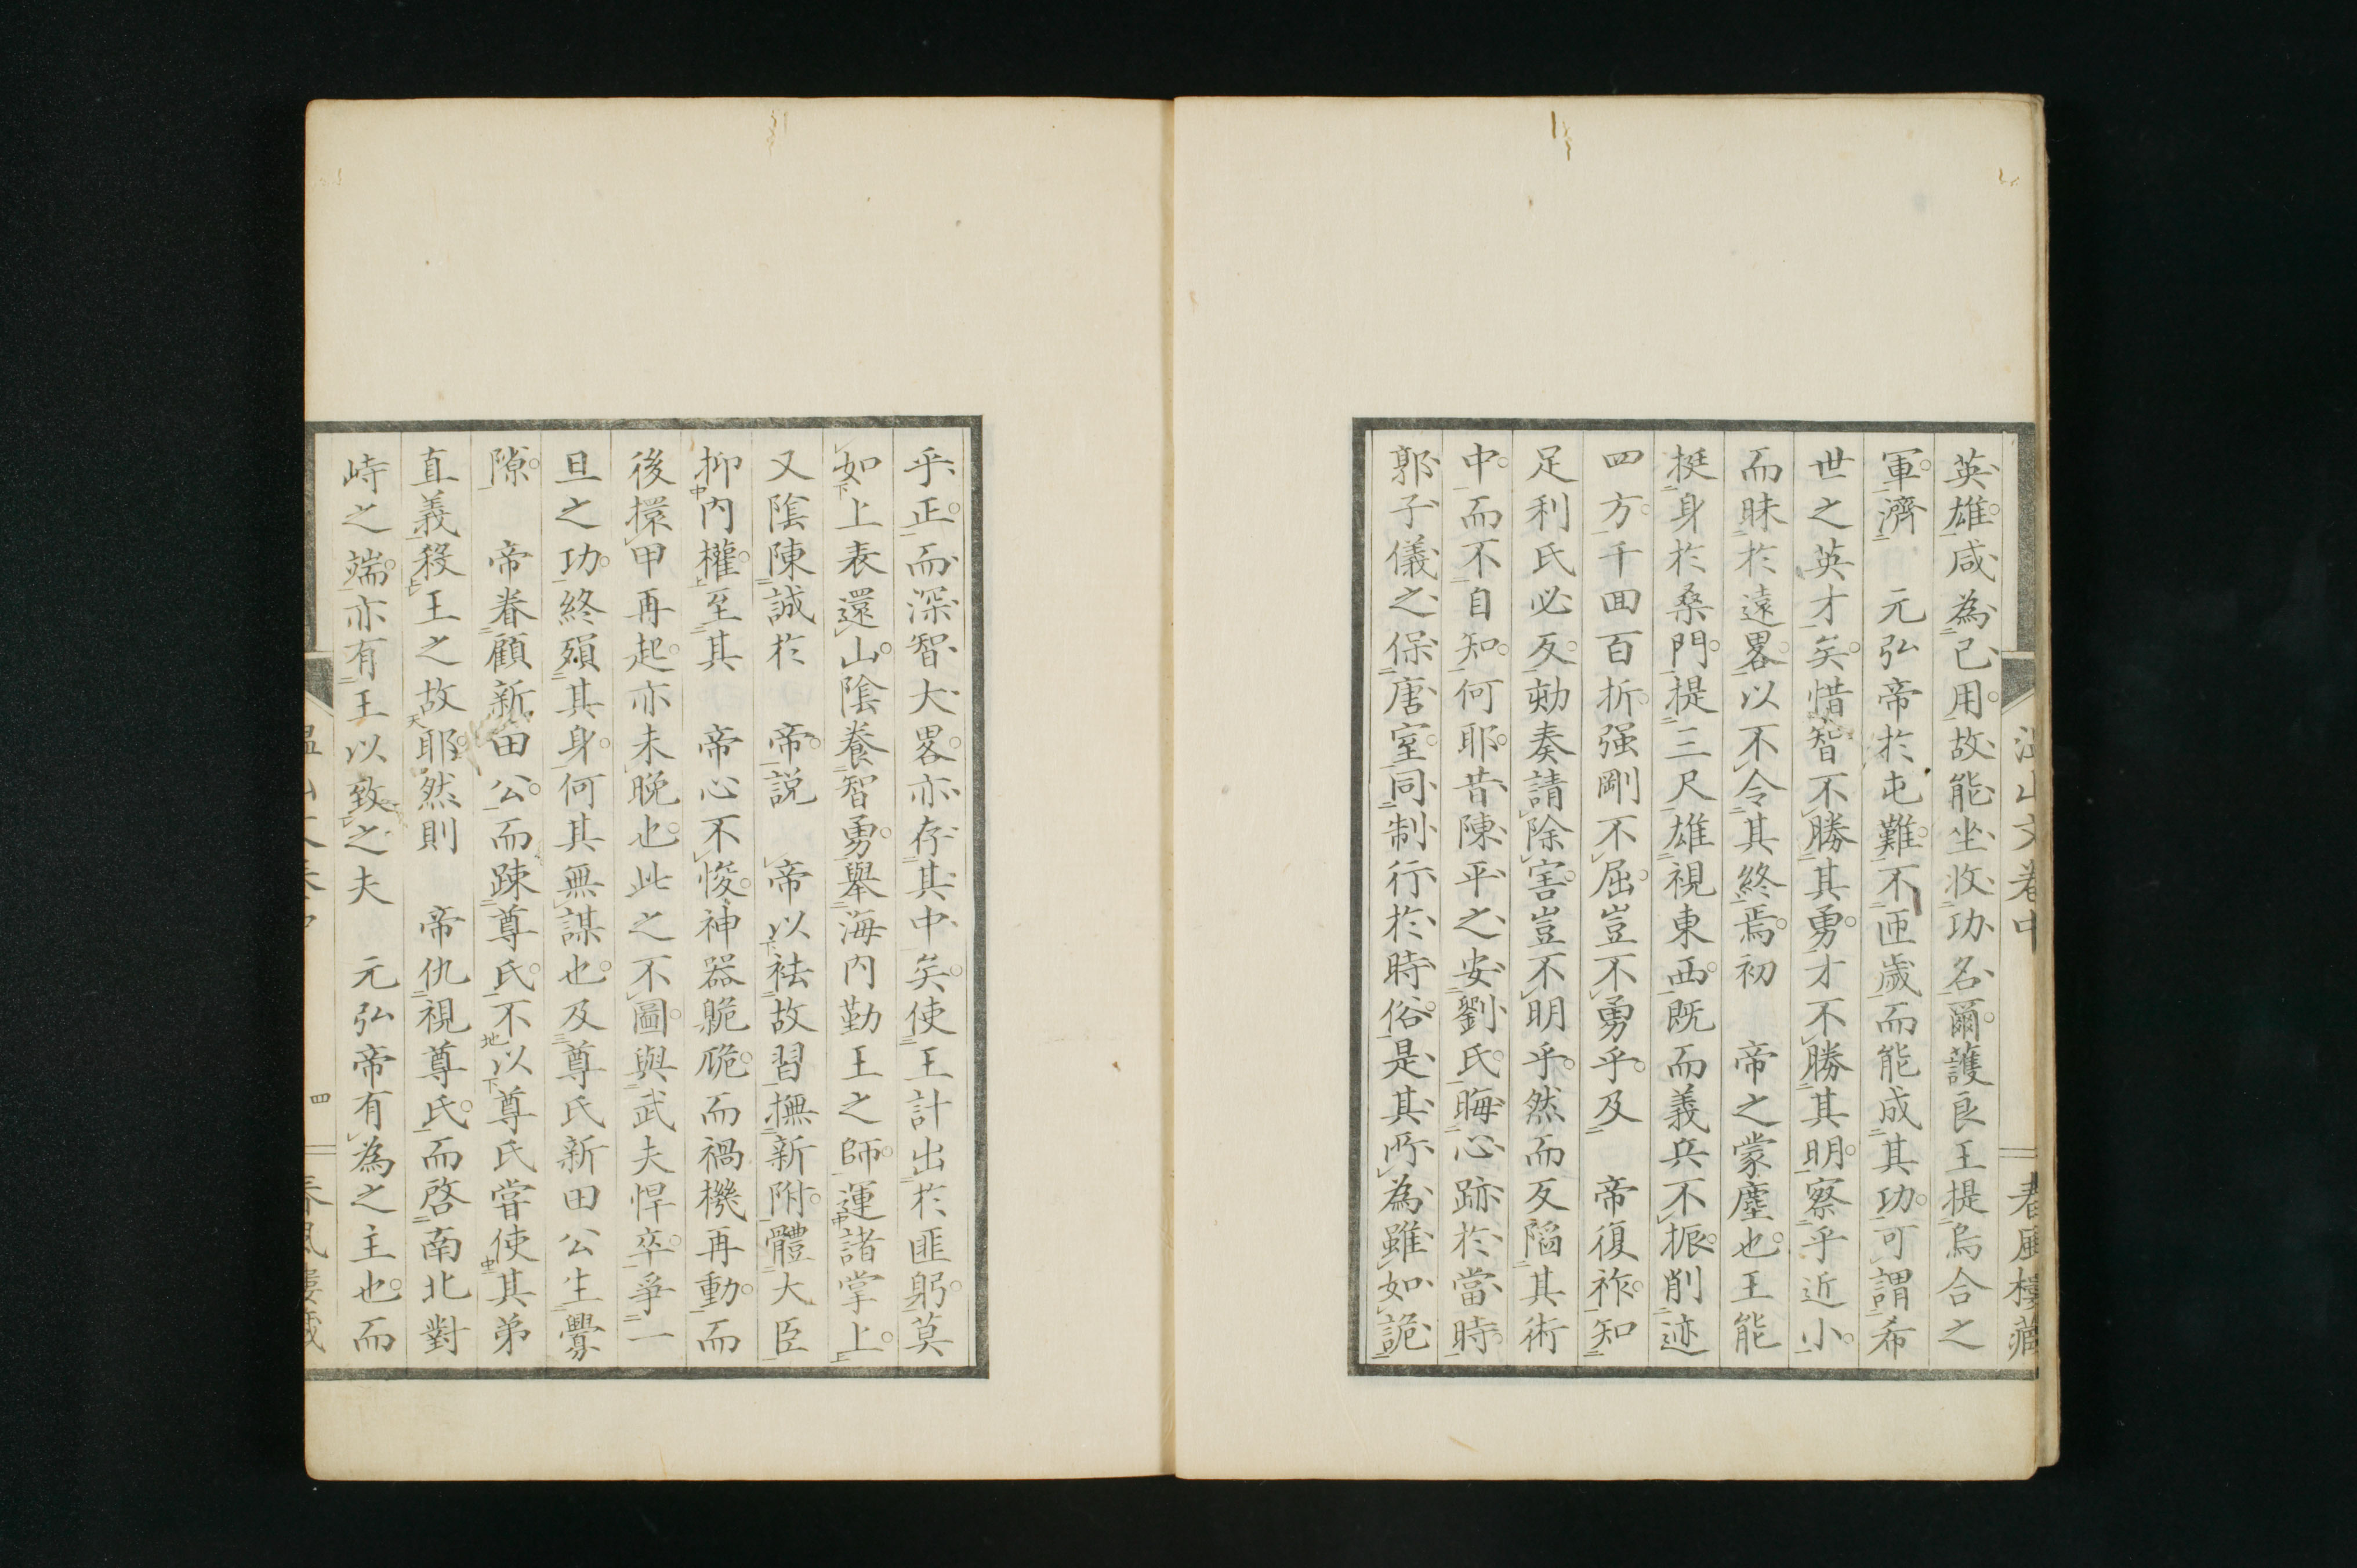 英雄咸為己用故能坐收功名爾護良王提烏合之
軍濟　元弘帝於屯難不匝歲而能成其功可謂希
世之英才矣惜智不勝其勇才不勝其明察乎近小
而昧於遠畧以不令其終焉初　帝之蒙塵也王能
挺身於桑門提三尺雄視東西既而義兵不振削迹
四方千囬百折强剛不屈豈不勇乎及　帝復祚知
足利氏必反勅奏請除害豈不明乎然而反陷其術
中而不自知何耶昔陳平之安劉氏晦心跡於當時
郭子儀之保唐室同制行於時俗是其所為雖如詭
乎正而深智大畧亦存其中矣使王計出於匪躬莫
如上表還山陰養智勇舉海內勤王之師運諸掌上
又陰陳誠於　帝説　帝以袪故習撫新附體大臣
抑內權至其　帝心不悛神器臲卼而禍機再動而
後擐甲再起亦未晚也此之不圖與武夫悍卒爭一
旦之功終殞其身何其無謀也及尊氏新田公生釁
隙　帝眷顧新田公而踈尊氏不以尊氏嘗使其弟
直義殺王之故耶然則　帝仇視尊氏而啓南北對
峙之端亦有王以致之夫　元弘帝有為之主也而
山文卷中
四
春風樓藏